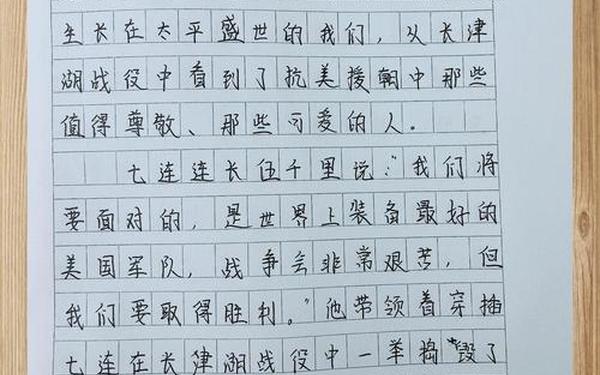 生长在太平盛世的我们，从长津
湖战役中看到了抗美援朝中那些
值得尊敬、那些可爱的人。
七连连长伍千里说：“我们将
要面对的，是世界上装备最好的
美国军队，战争会非常艰苦，但
我们要取得胜利。”他带领着穿插
七连在长津湖战役中一举捣毁了